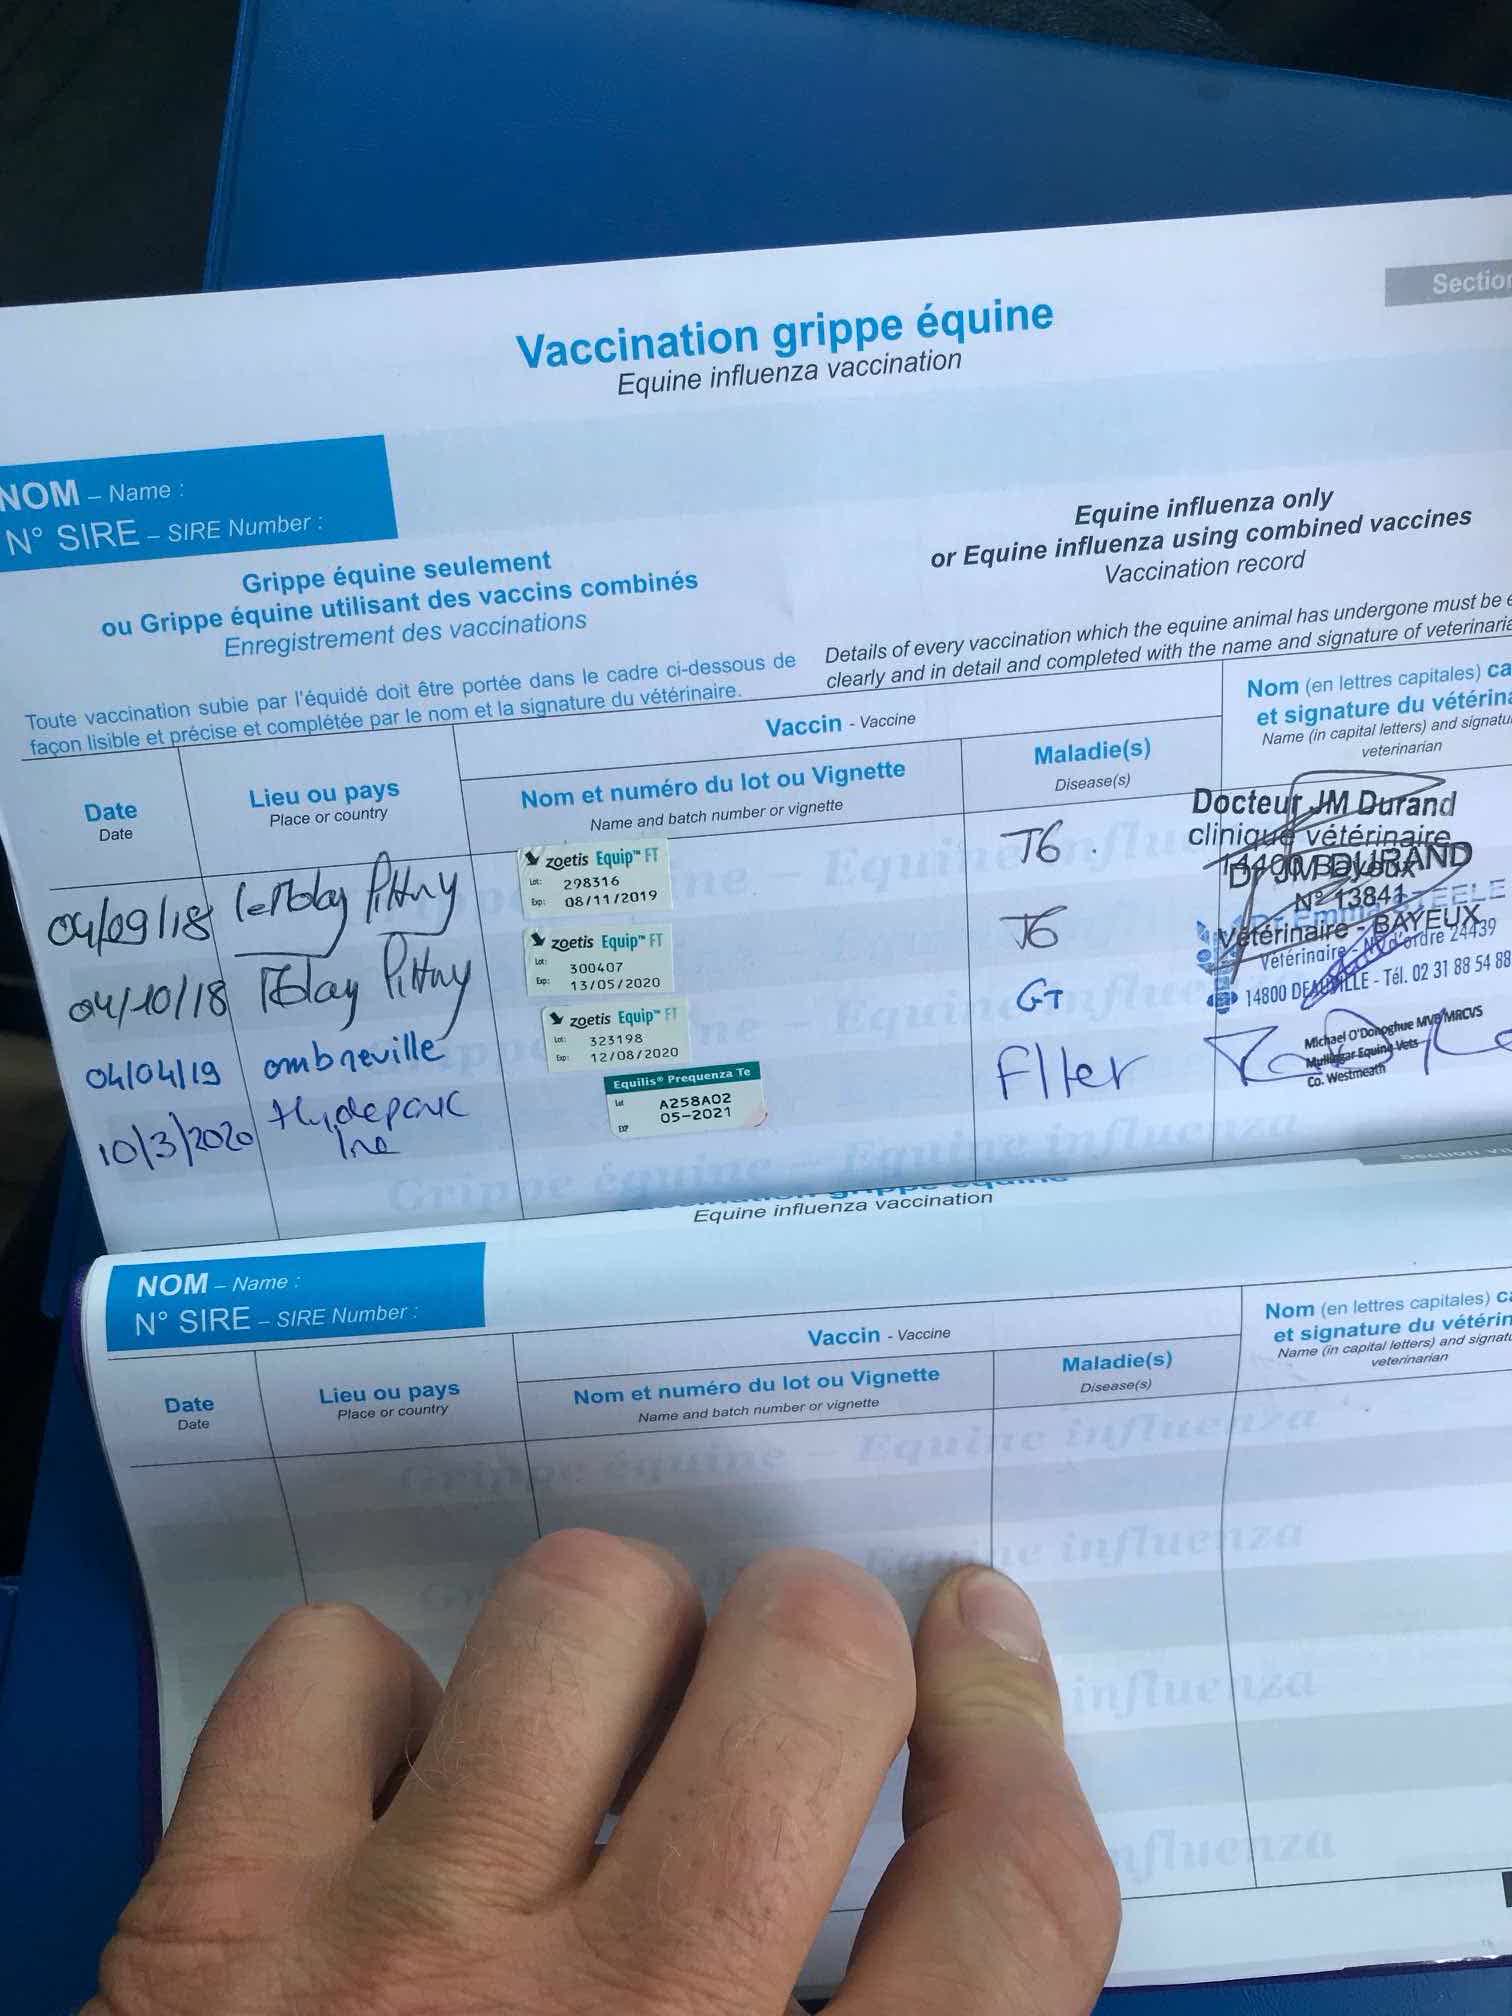 Section
Vaccination grippe équine
Equine influenza vaccination
NOM – Name :
N° SIRE – SIRE Number :
Grippe équine seulement
ou Grippe équine utilisant des vaccins combinés
Enregistrement des vaccinations
Equine influenza only
or Equine influenza using combined vaccines
Vaccination record
Toute vaccination subie par l'équidé doit être portée dans le cadre ci-dessous de
façon lisible et précise et complétée par le nom et la signature du vétérinaire.
Details of every vaccination which the equine animal has undergone must be e
clearly and in detail and completed with the name and signature of veterinaria
Date
Date
Lieu ou pays
Place or country
Vaccin - Vaccine
Nom et numéro du lot ou Vignette
Name and batch number or vignette
Maladie(s)
Disease(s)
Nom (en lettres capitales) ca
et signature du vétérina
Name (in capital letters) and signatu
veterinarian
04/09/18
zoetis Equip™ FT
Lot: 298316
Exp: 08/11/2019
TG
Docteur JM Durand
clinique vétérinaire
14400 Bayeux
Dr JM DURAND
N° 13841
Vétérinaire - BAYEUX
04/10/18
zoetis Equip™ FT
Lot: 300407
Exp: 13/05/2020
TG
Dr Emma STEELE
Vétérinaire - N° d'ordre 24439
14800 DEAUVILLE - Tél. 02 31 88 54 88
04/04/19 ombreville
zoetis Equip™ FT
Lot: 323198
Exp: 12/08/2020
GT
10/3/2020 Hydeparc
Ire
Equilis® Prequenza Te
Lot A258A02
EXP 05-2021
Michael O'Donoghue MVB MRCVS
Mullingar Equine Vets
Co. Westmeath
Equine influenza vaccination
NOM – Name :
N° SIRE – SIRE Number :
Date
Date
Lieu ou pays
Place or country
Vaccin - Vaccine
Nom et numéro du lot ou Vignette
Name and batch number or vignette
Maladie(s)
Disease(s)
Nom (en lettres capitales) ca
et signature du vétérin
Name (in capital letters) and signatu
veterinarian
Grippe équine – Equine influenza
Equine influenza
influenza
influenza